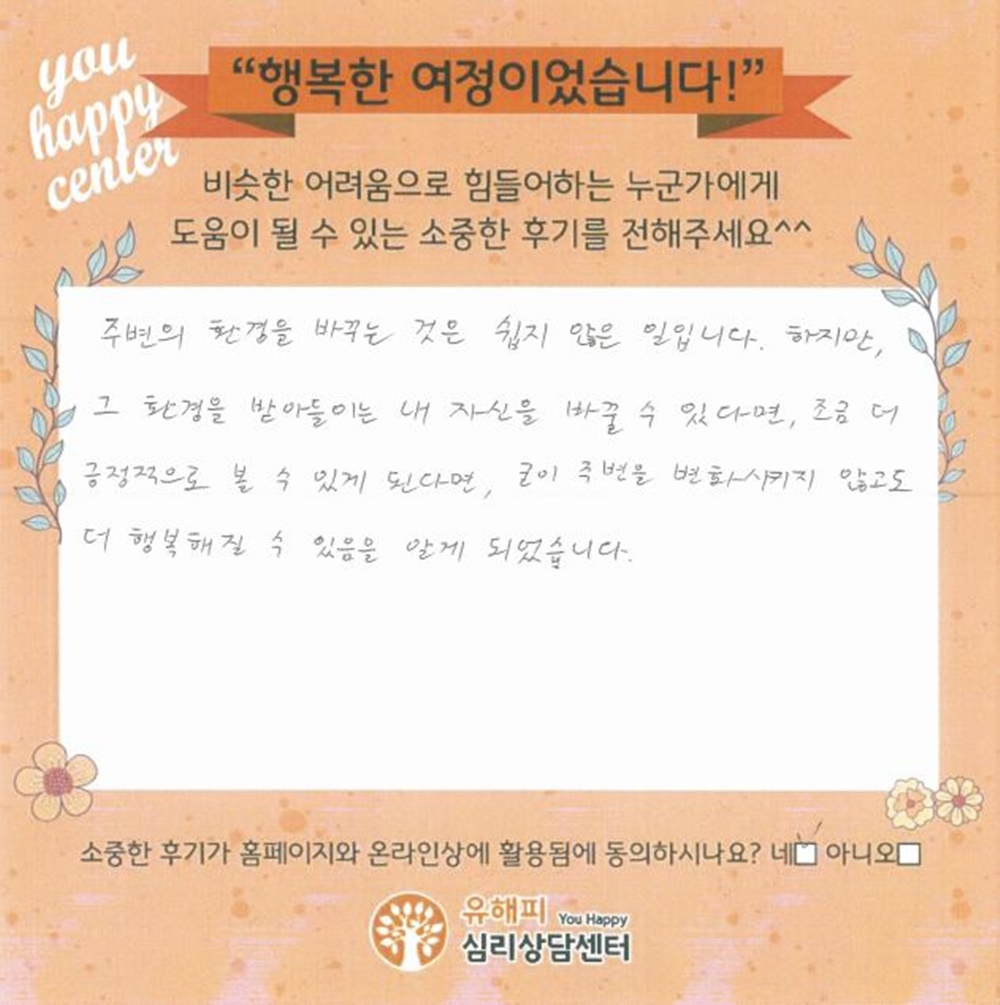 you
happy
center
“행복한 여정이었습니다!”
비슷한 어려움으로 힘들어하는 누군가에게
도움이 될 수 있는 소중한 후기를 전해주세요^^
주변의 환경을 바꾸는 것은 쉽지 않은 일입니다. 하지만,
그 환경을 받아들이는 내 자신을 바꿀 수 있다면, 조금 더
긍정적으로 볼 수 있게 된다면, 굳이 주변을 변화시키지 않고도
더 행복해질 수 있음을 알게 되었습니다.
소중한 후기가 홈페이지와 온라인상에 활용됨에 동의하시나요? 네 아니오
유해피 You Happy
심리상담센터